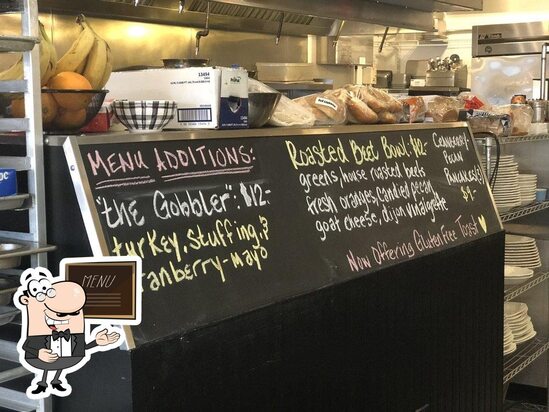 MENU ADDITIONS:
"the Gobbler": $12-
turkey, stuffing, &
cranberry-mayo
Roasted Beet Bowl: $12-
greens, house roasted beets
fresh oranges, candied pecan
goat cheese, dijon vinaigrette
Now Offering Gluten Free Toast!
CRANBERRY &
PECAN
PANCAKE(S)
MENU